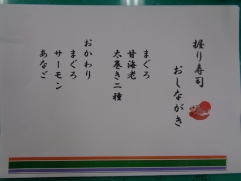 握り寿司
おしながき
まぐろ
甘海老
太巻き二種
おかわり
まぐろ
サーモン
あなご